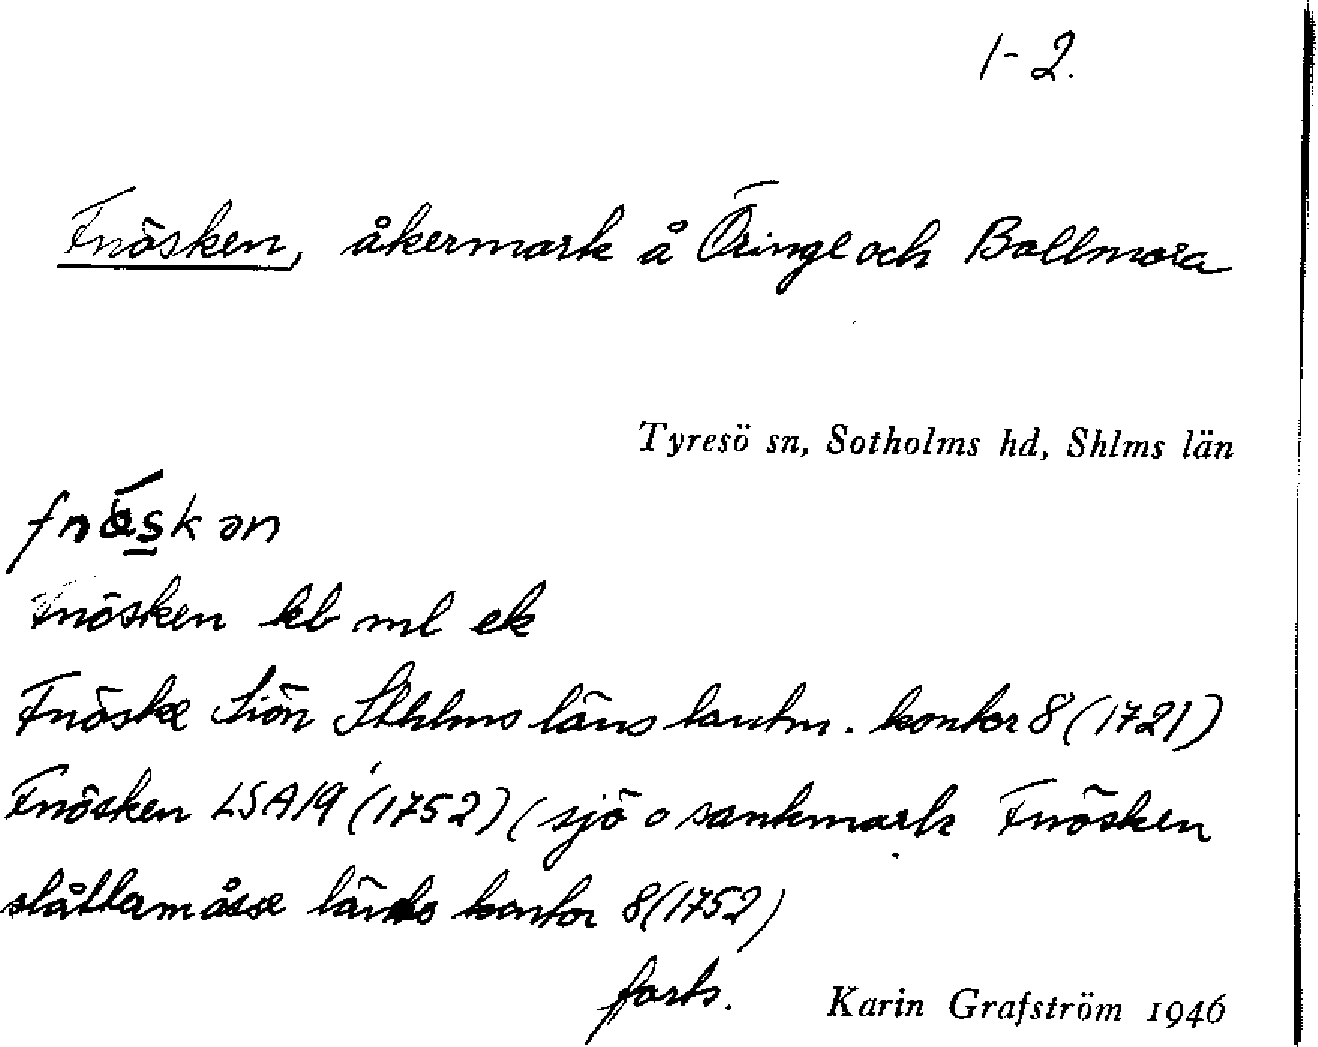 1-2.
Fnösken, åkermark å Öringe och Bollmora
Tyresö sn, Sotholms hd, Shlms län
fnö́skən
Fnösken kb ml ek
Fnöske Siön Sthlms läns lantm. kontor 8 (1721)
Fnösken LSA 19 (1752) (sjö o sankmark Fnösken
slåttermåsse kontor 8 (1752)
forts.
Karin Grafström 1946